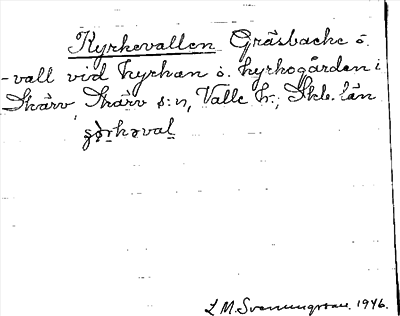 Kyrkevallen Gräsbacke o.
-vall vid kyrkan o. kyrkogården i
Skärv, Skärv s:n, Valle h:, Skb. län
L M. Svenungsson. 1946.